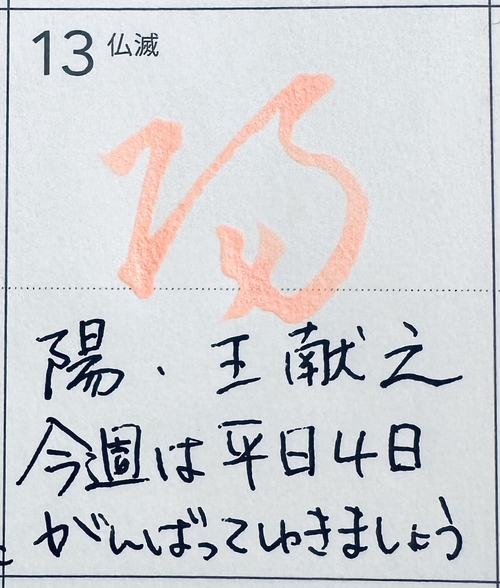 13 仏滅
陽
陽・王献之
今週は平日4日
がんばってゆきましょう